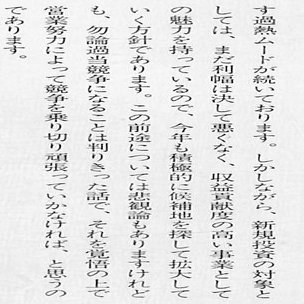 す過熱ムードが続いております。しかしながら、新規投資の対象と
しては、まだ利幅は決して悪くなく、収益貢献度の高い事業として
の魅力を持っているので、今年も積極的に候補地を探して拡大して
いく方針であります。この前途については悲観論もありますけれど
も、勿論過当競争になることは判りきった話で、それを覚悟の上で
営業努力によって競争を乗り切り頑張っていかなければ、と思うの
であります。